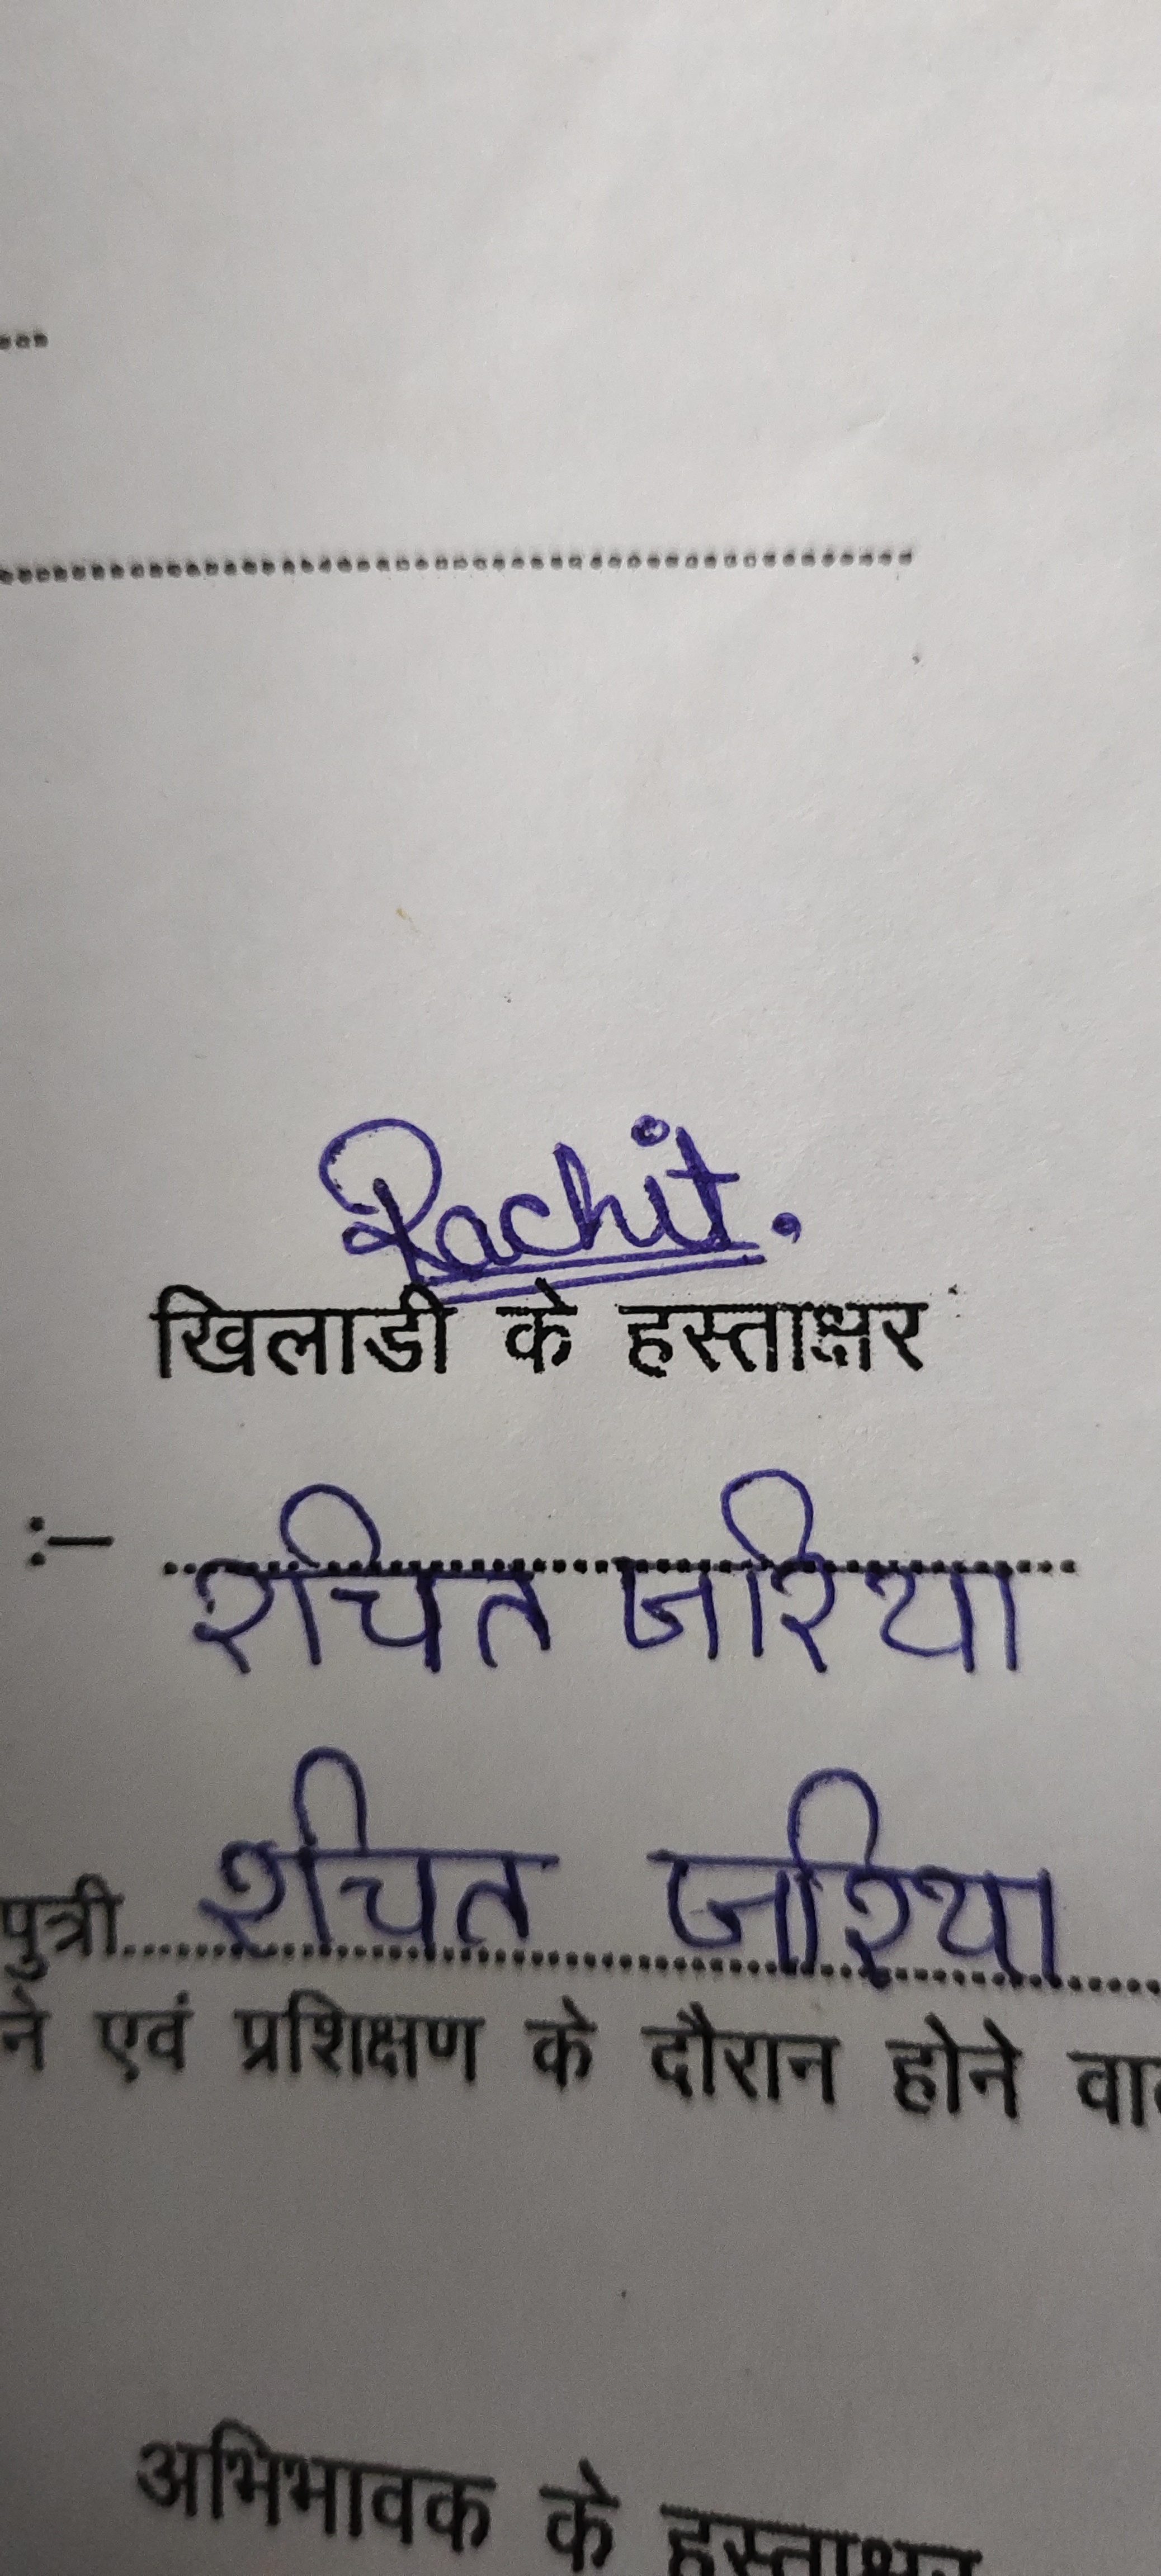 Rachit.
खिलाडी के हस्ताक्षर
:- रचित जरिया
पुत्री रचित जरिया
ने एवं प्रशिक्षण के दौरान होने
अभिभावक के हस्ताक्षर